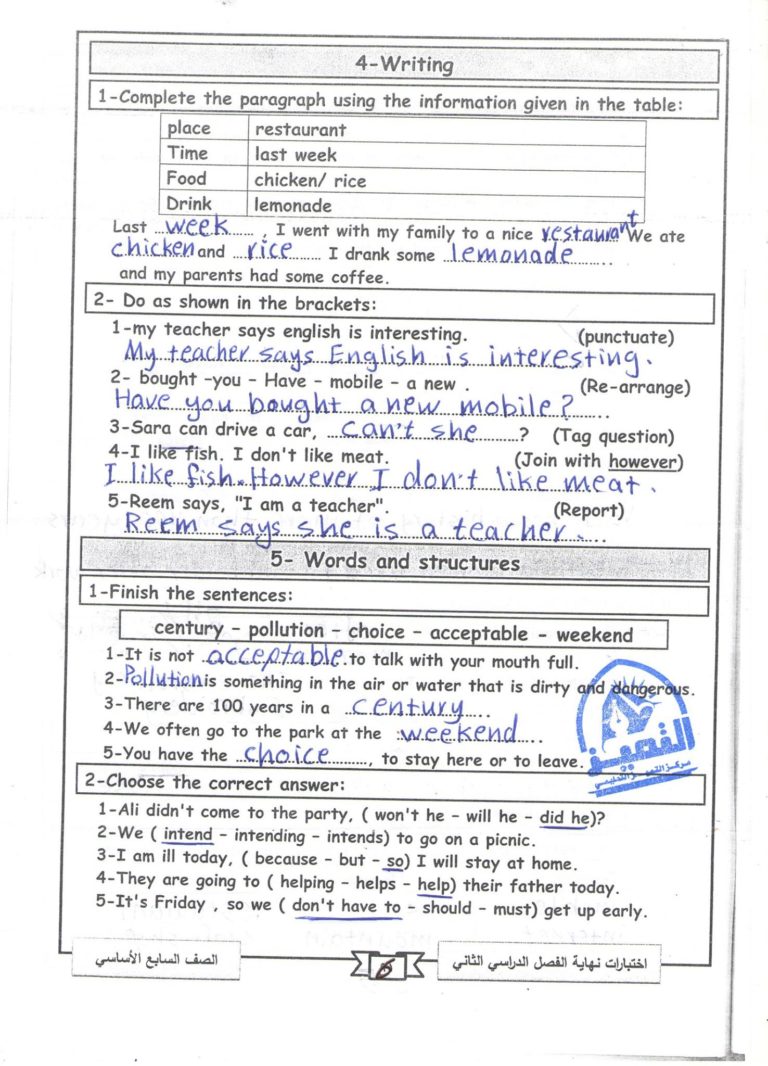 4-Writing
1-Complete the paragraph using the information given in the table:
place restaurant
Time last week
Food chicken/ rice
Drink lemonade
Last ...week......, I went with my family to a nice restaurant We ate
chicken and ...rice........ I drank some ..lemonade.......
and my parents had some coffee.
2- Do as shown in the brackets:
1-my teacher says english is interesting. (punctuate)
My teacher says English is interesting.
2- bought -you - Have - mobile - a new . (Re-arrange)
Have you bought a new mobile?
3-Sara can drive a car, ....can't she..........? (Tag question)
4-I like fish. I don't like meat. (Join with however)
I like fish. However I don't like meat.
5-Reem says, "I am a teacher". (Report)
Reem says she is a teacher.
5- Words and structures
1-Finish the sentences:
century - pollution - choice - acceptable - weekend
1-It is not .acceptable. to talk with your mouth full.
2-Pollution is something in the air or water that is dirty and dangerous.
3-There are 100 years in a ..century.....
4-We often go to the park at the .weekend...
5-You have the ..choice........., to stay here or to leave.
التميز
مركز التميز التعليمي
2-Choose the correct answer:
1-Ali didn't come to the party, ( won't he - will he - did he)?
2-We ( intend - intending - intends) to go on a picnic.
3-I am ill today, ( because - but - so) I will stay at home.
4-They are going to ( helping - helps - help) their father today.
5-It's Friday , so we ( don't have to - should - must) get up early.
اختبارات نهاية الفصل الدراسي الثاني
الصف السابع الأساسي